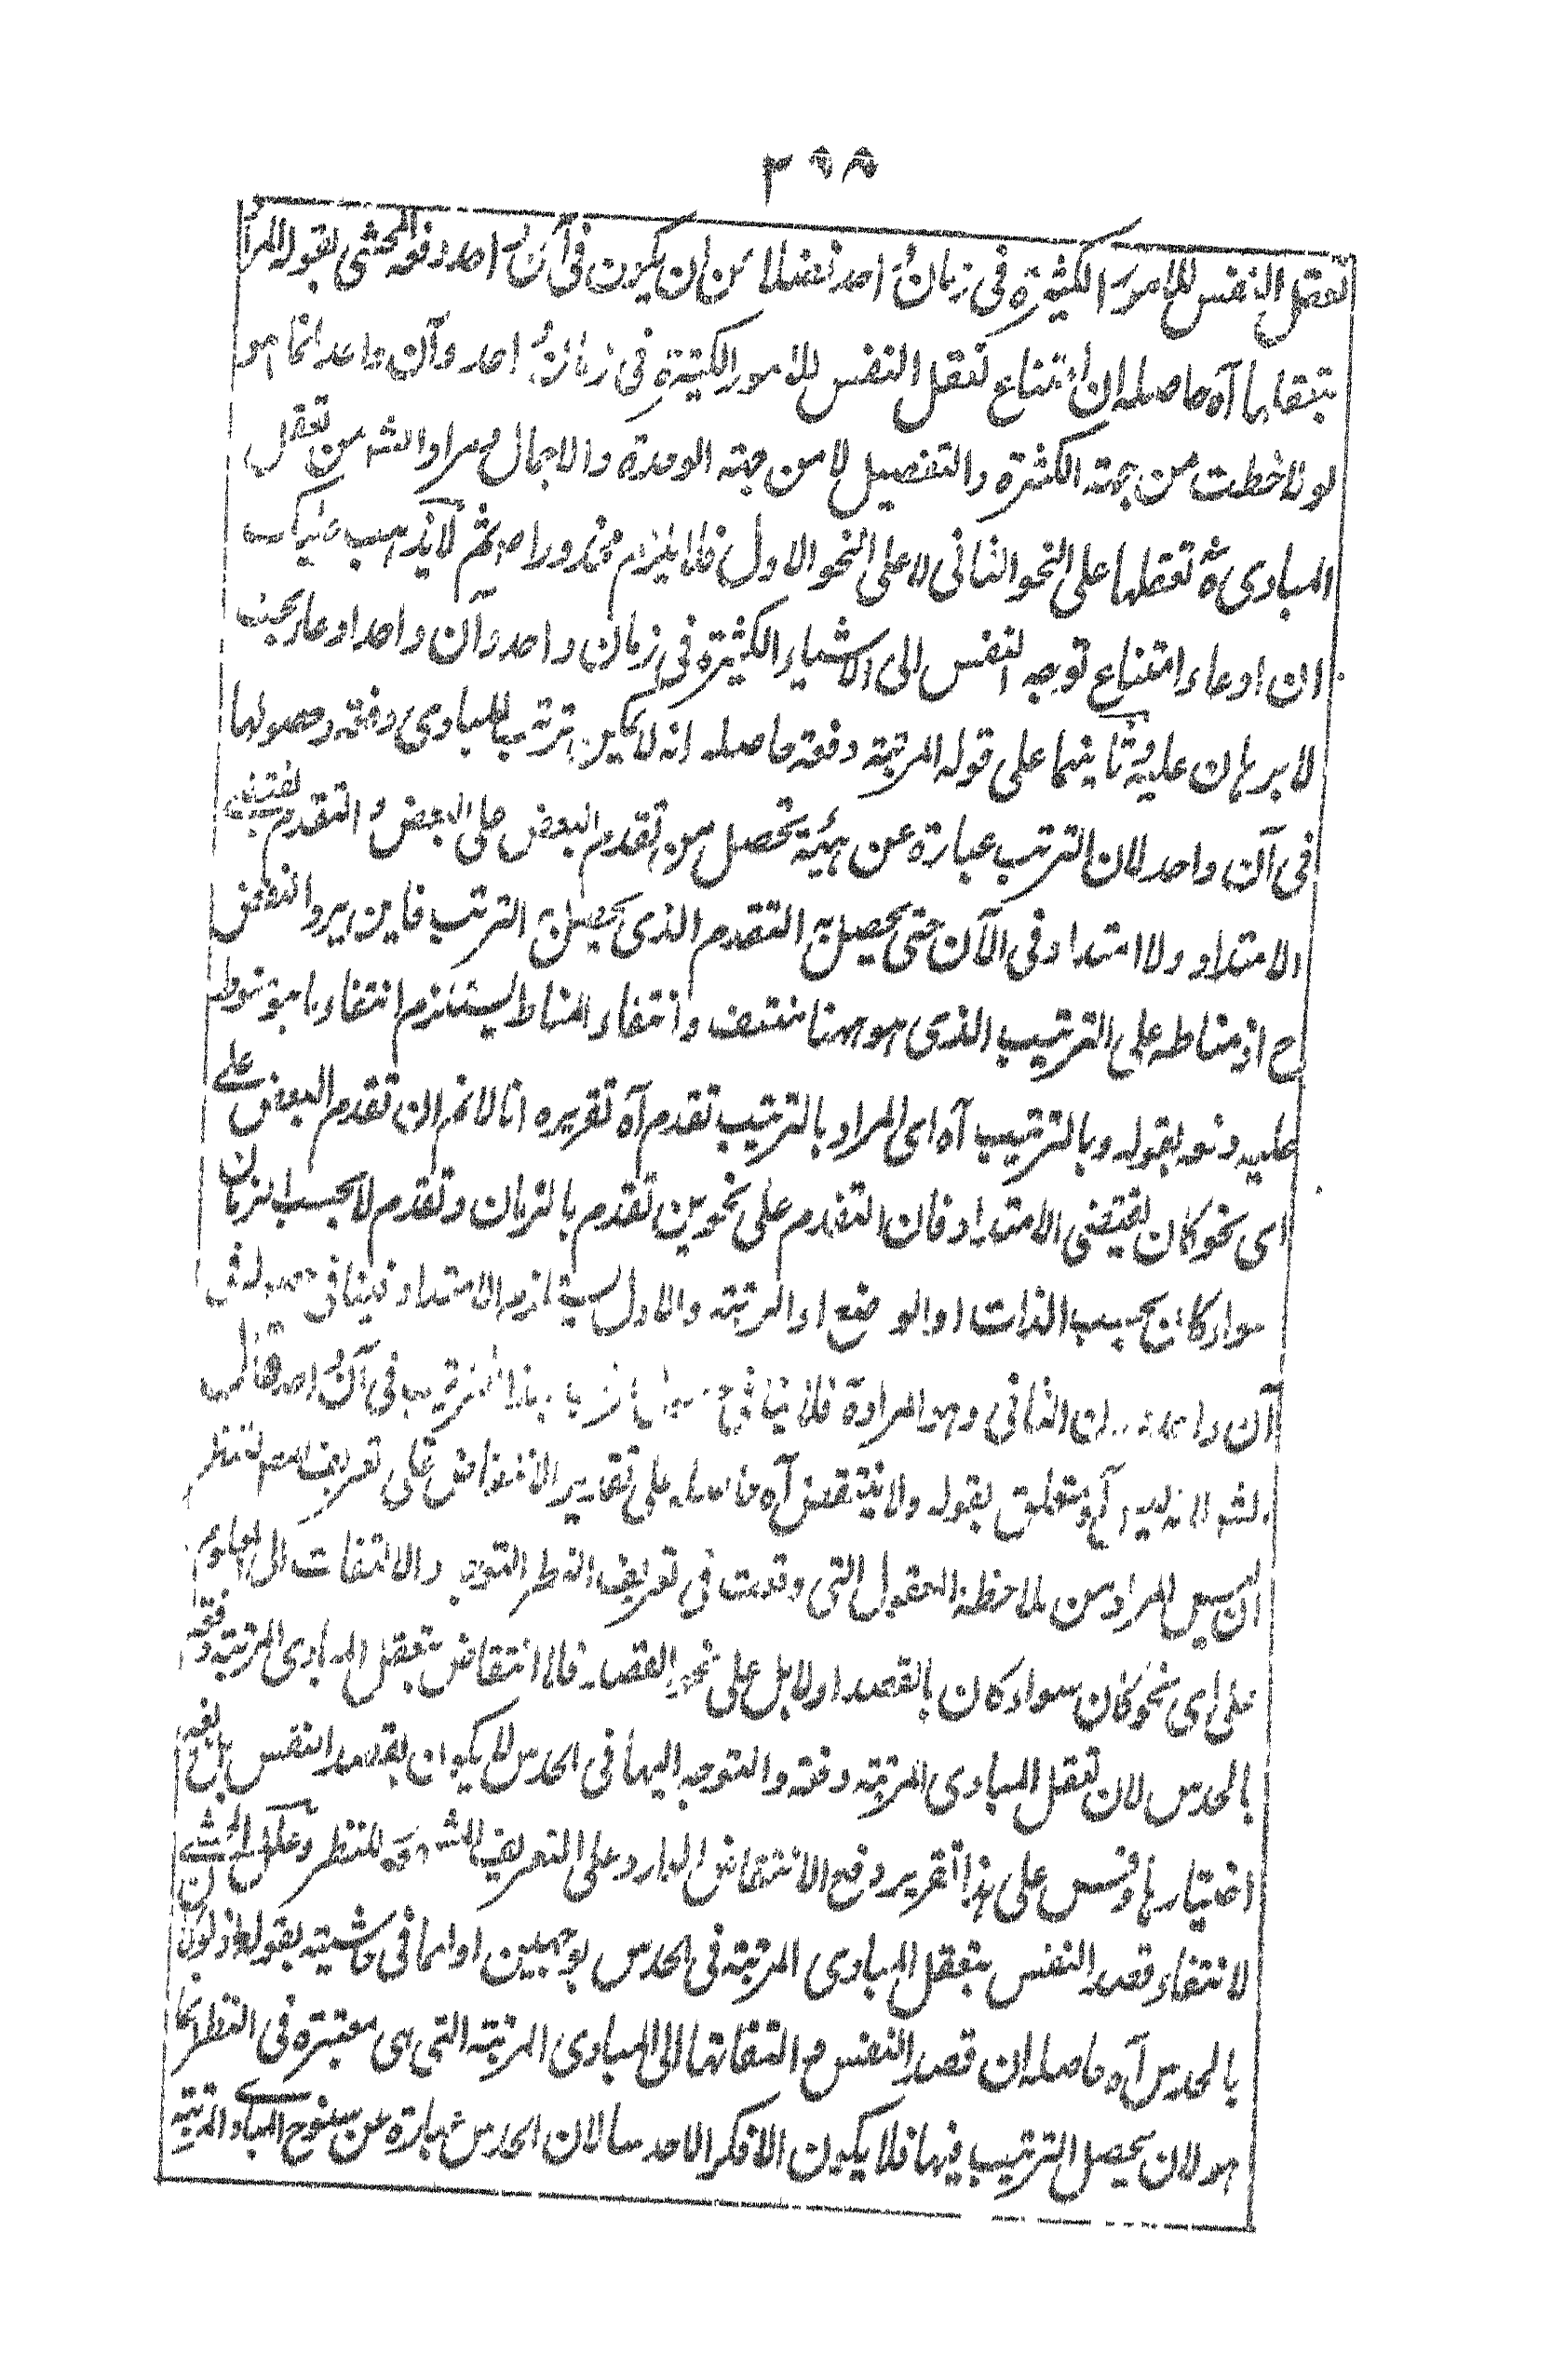 تعقل النفس للامور الكثيرة فى زمان واحد فضلا من ان يكون فى آن واحد دفعه المحشى بقوله المراد
بتعقلها آه حاصله ان امتناع تعقل النفس للامور الكثيرة فى زمان واحد وآن واحد انما هو
لو لاحظت من جهة الكثرة والتفصيل لا من جهة الوحدة والاجمال ومراد الشه من تعقل
المبادى تعقلها على النحو الثانى لا على النحو الاول فلا يلزم محذور اصلا ثم لا يذهب عليك
ان ادعاء امتناع توجه النفس الى الاشياء الكثيرة فى زمان واحد وآن واحد ادعاء بحت
لا برهان عليه وثانيهما على قوله المرتبة دفعة حاصله انه لا يمكن ترتب للمبادى دفعة وحصولها
فى آن واحد لان الترتب عبارة عن هيئة تحصل من تقدم البعض على البعض والتقدم يقتضى
الامتداد ولا امتداد فى الآن حتى يحصل به التقدم الذى يحصل به الترتب فاين يرد النقض
ح اذ مناطه على الترتيب الذى هو ههنا منتف وانتفاء المناط يستلزم انتفاء ما هو منوط
عليه دفعه بقوله وبالترتيب آه اى المراد بالترتيب تقدم آه تقريره انا لا نم ان تقدم البعض على
اى نحو كان يقتضى الامتداد فان التقدم على نحوين تقدم بالزمان وتقدم لا بحسب الزمان
سواء كان بحسب الذات او الوضع او المرتبة والاول يستلزم الامتداد فينافى حصوله فى
آن واحد دون الثانى وهو المراد فلا ينافى الترتيب فى آن واحد قال
الشه لانه ليس آه متعلق بقوله ولا ينتقض آه حاصله على تقدير الانتقاض على تعريف للنظر
ان ليس المراد من ملاحظة المعقول التى وقعت فى تعريف النظر التوجه والالتفات الى المعلوم
على اى نحو كان سواء كان بالقصد اولا بل على نحو القصد فلا انتقاض بتعقل المبادى المرتبة دفعة
بالحدس لان تعقل المبادى المرتبة دفعة والتوجه اليها فى الحدس لا يكون بقصد النفس بالغه
اختيارها وقس على هذا تقرير دفع الانتقاض الوارد على التعريف للنظر وعلل المحشى
لانتفاء قصد النفس بتعقل المبادى المرتبة فى الحدس بوجهين اولهما فى حاشيته بقوله اذ لو كان
بالحدس آه حاصله ان قصد النفس والتفاتها الى المبادى المرتبة التى هى معتبرة فى النظر انما
هو لان يحصل الترتيب فيها فلا يكون الا فكرا لا حدسا لان الحدس عبارة عن سنوح المبادى المرتبة